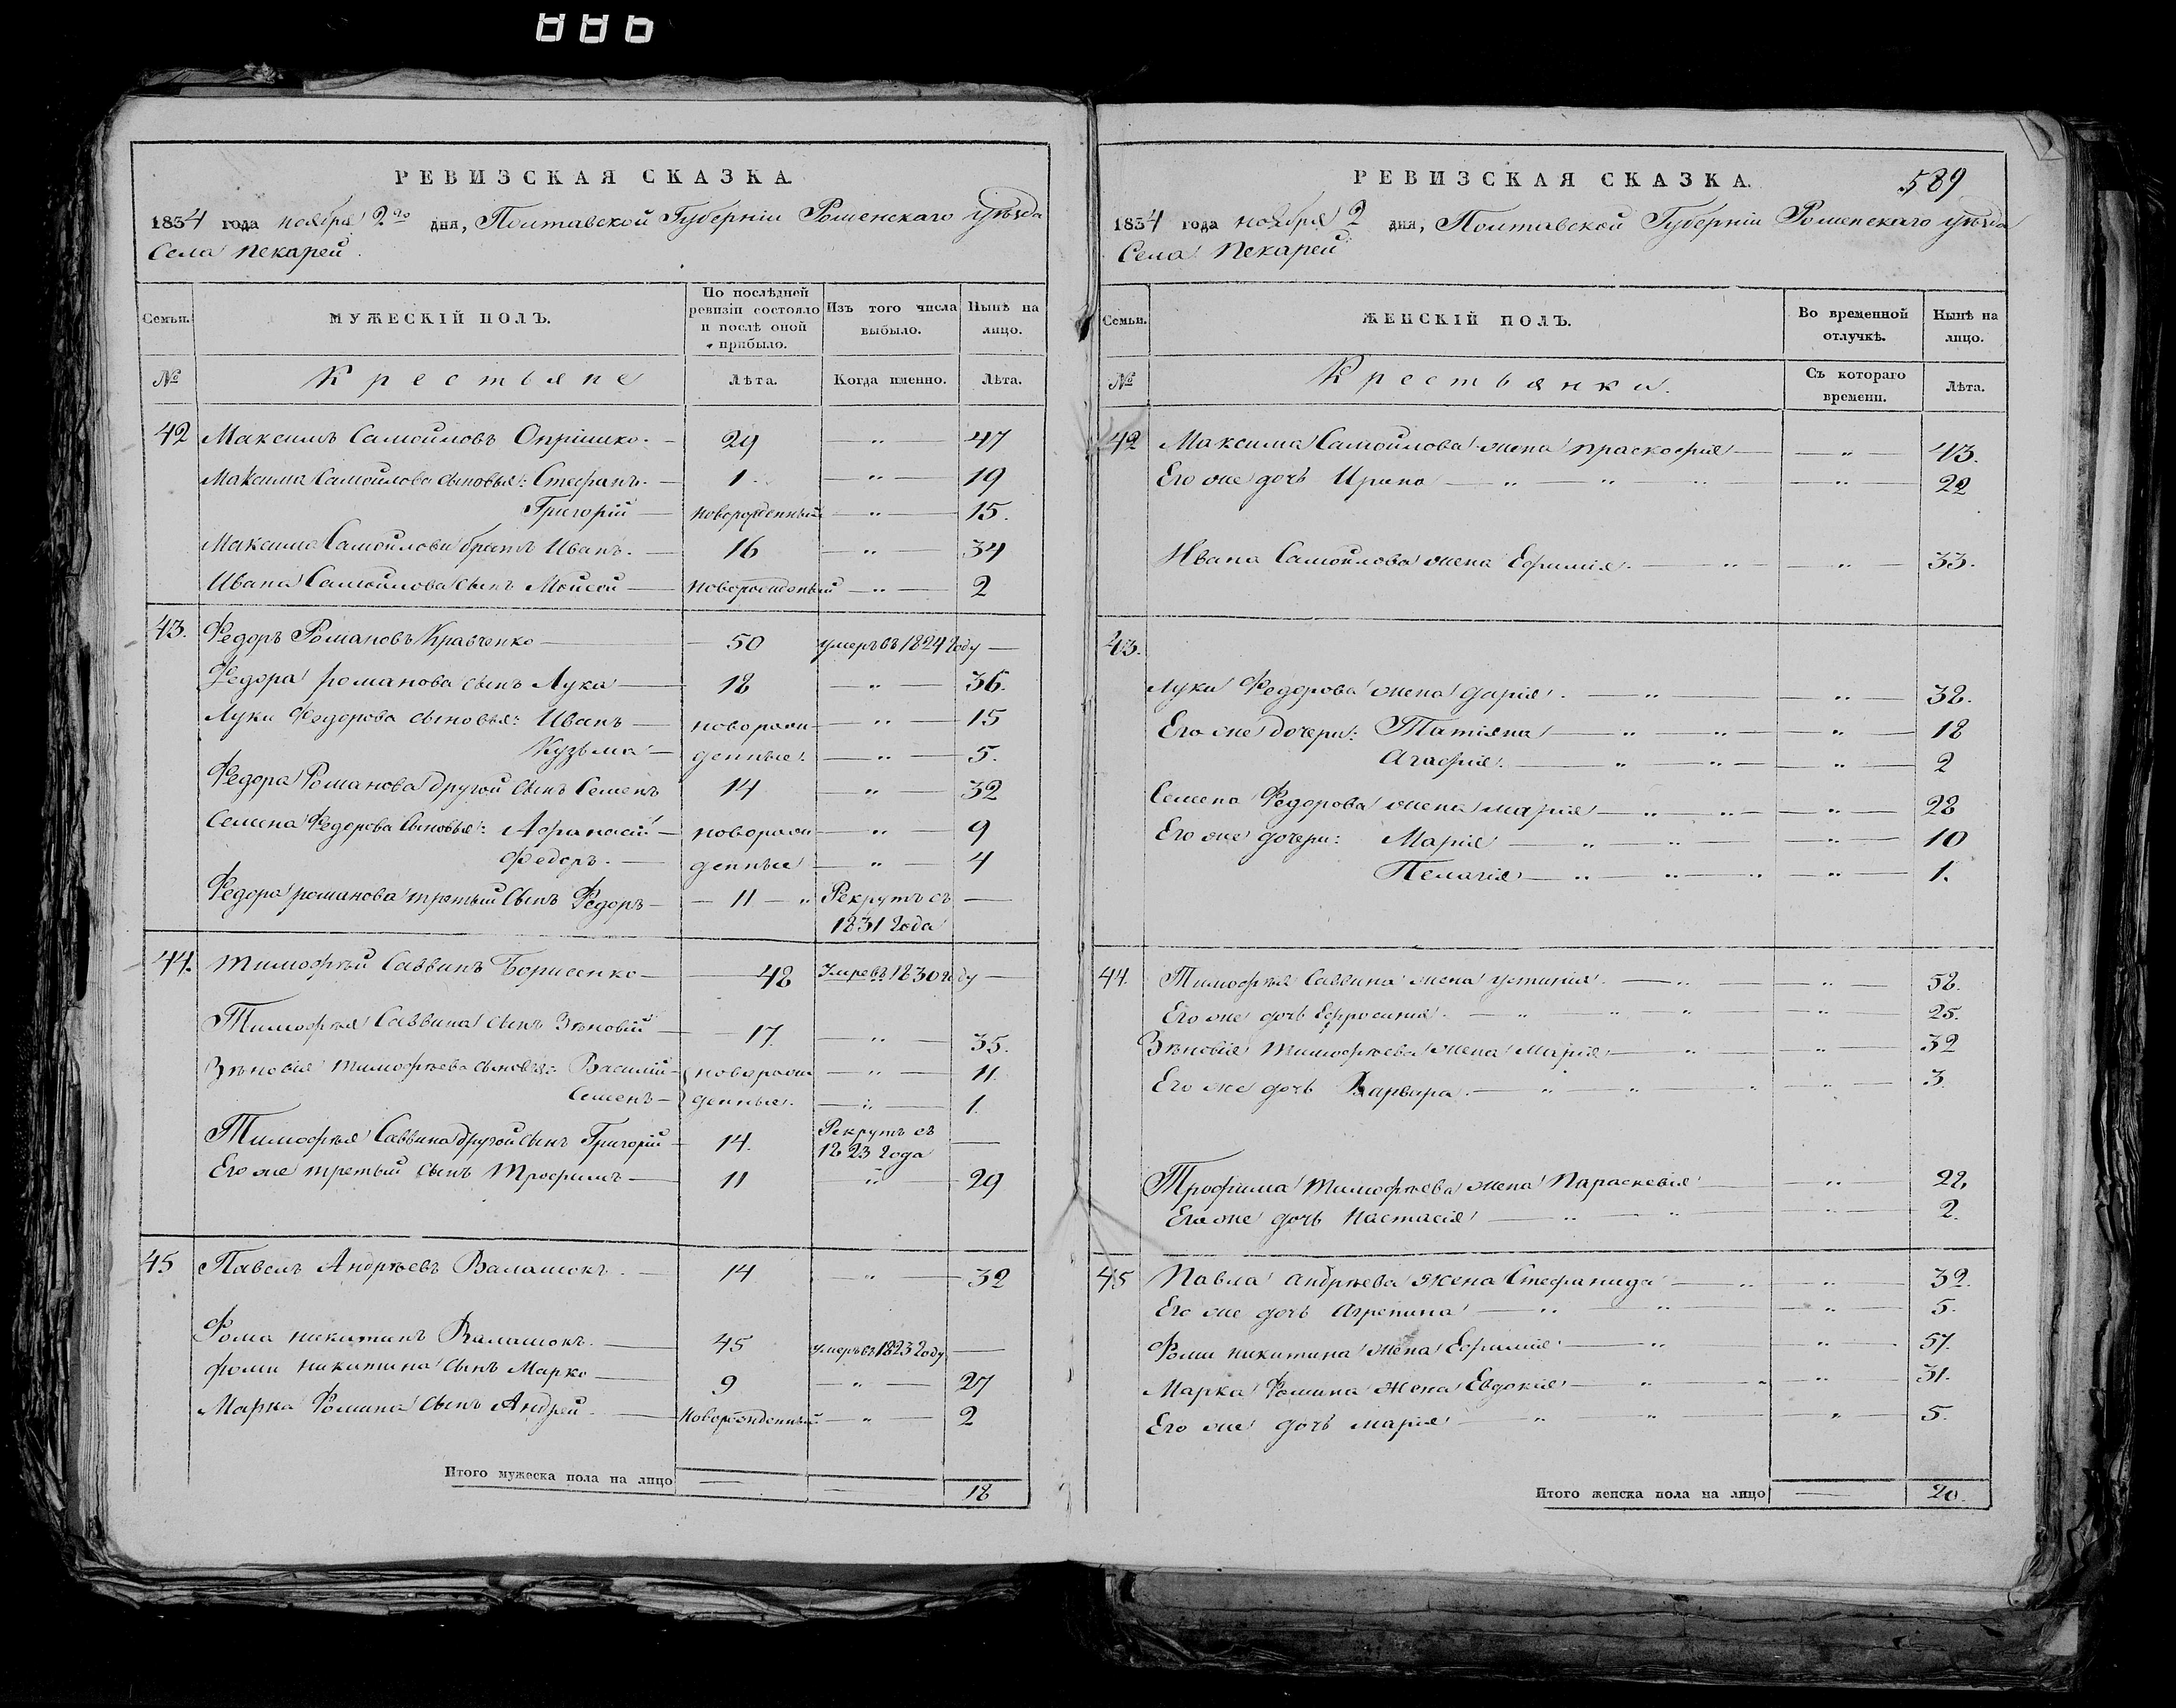 РЕВИЗСКАЯ СКАЗКА.
1834 года ноября 2го дня, Полтавской Губерніи Роменскаго уѣзда
Села Пекарей.
Семьи.
МУЖЕСКІЙ ПОЛЪ.
По послѣдней ревизіи состояло и послѣ оной прибыло.
Изъ того числа выбыло.
Нынѣ на лицо.
№
Крестьяне
Лѣта.
Когда именно.
Лѣта.
42 Максимъ Самойловъ Опрішко. — 29 — " — 47
Максима Самойлова сыновья: Стефанъ. — 1 — " — 19
Григорій — новорожденный — " — 15.
Максима Самойлова братъ Иванъ. — 16 — " — 34
Ивана Самойлова сынъ Моисей — новорожденый — " — 2
43. Федоръ Романовъ Кравченко — 50 умеръ въ 1824 году —
Федора романова сынъ Лука — 18 — " — 36.
Луки Федорова сыновья: Иванъ — новорож — " — 15
Кузьма — денные. — " — 5.
Федора Романова другой сынъ Семенъ 14 — " — 32
Семена Федорова сыновья: Афанасій — новорож — " — 9
Федоръ. — денные — " — 4
Федора романова третьий сынъ Федоръ — 11 — " Рекрутъ съ —
1831 года
44. Тимофѣй Саввинъ Борисенко — 48 Умре въ 1830 году —
Тимофѣя Саввина сынъ Зѣновій — 17. — " — 35.
Зѣновія Тимофѣева сыновья: Василій — новорож — " — 11.
Семенъ — денные. — " — 1.
Тимофѣя Саввина другой сынъ Григорій — 14. Рекрутъ съ —
1823 года
Его же третьий сынъ Трофимъ — 11 " — 29
45 Павелъ Андрѣевъ Валашокъ. — 14 — " — 32
Фома никитинъ Валашокъ. — 45 умеръ въ 1823 году —
фомы никитина сынъ Марко — 9 — " — 27
Марка Фомина сынъ Андрей — новорожденный — " — 2
Итого мужеска пола на лицо — — 18
РЕВИЗСКАЯ СКАЗКА.
589
1834 года ноября 2 дня, Полтавской Губерніи Роменскаго уѣзда
Села Пекарей
Семьи.
ЖЕНСКІЙ ПОЛЪ.
Во временной отлучкѣ.
Нынѣ на лицо.
№
Крестьянки.
Съ котораго времени.
Лѣта.
42 Максима Самойлова жена праскофія — — " — 43.
Его же дочь Ирина — " — " — " — 22
Ивана Самойлова жена Ефимія. — " — — " — 33.
43.
Луки Федорова жена дарія. — " — — " — 38.
Его же дочери: Татіяна — " — " — — " — 18
Агафія. — " — " — — " — 2
Семена Федорова жена марія — " — " — — " — 28
Его же дочери: Марія — " — " — — " — 10
Пелагія — " — " — " — " — 1.
44. Тимофѣя Саввина жена устинія. — " — — " — 58.
Его же дочь Ефросинія. — " — " — " — " — 25.
Зѣновія Тимофѣева жена Марія — " — — " — 32
Его же дочь Варвара. — " — " — " — " — 3.
Трофима Тимофѣева жена Параскевія — — " — 22,
Его же дочь настасія — " — " — — " — 2.
45 Павла андрѣева жена Стефанида — " — — " — 32.
Его же дочь агрепина — " — " — — " — 5.
Фомы никитина жена Ефимія — " — — " — 57.
Марка Фомина жена Евдокія — " — " — " — 31.
Его же дочь марія — " — " — — " — 5.
Итого женска пола на лицо — 20.